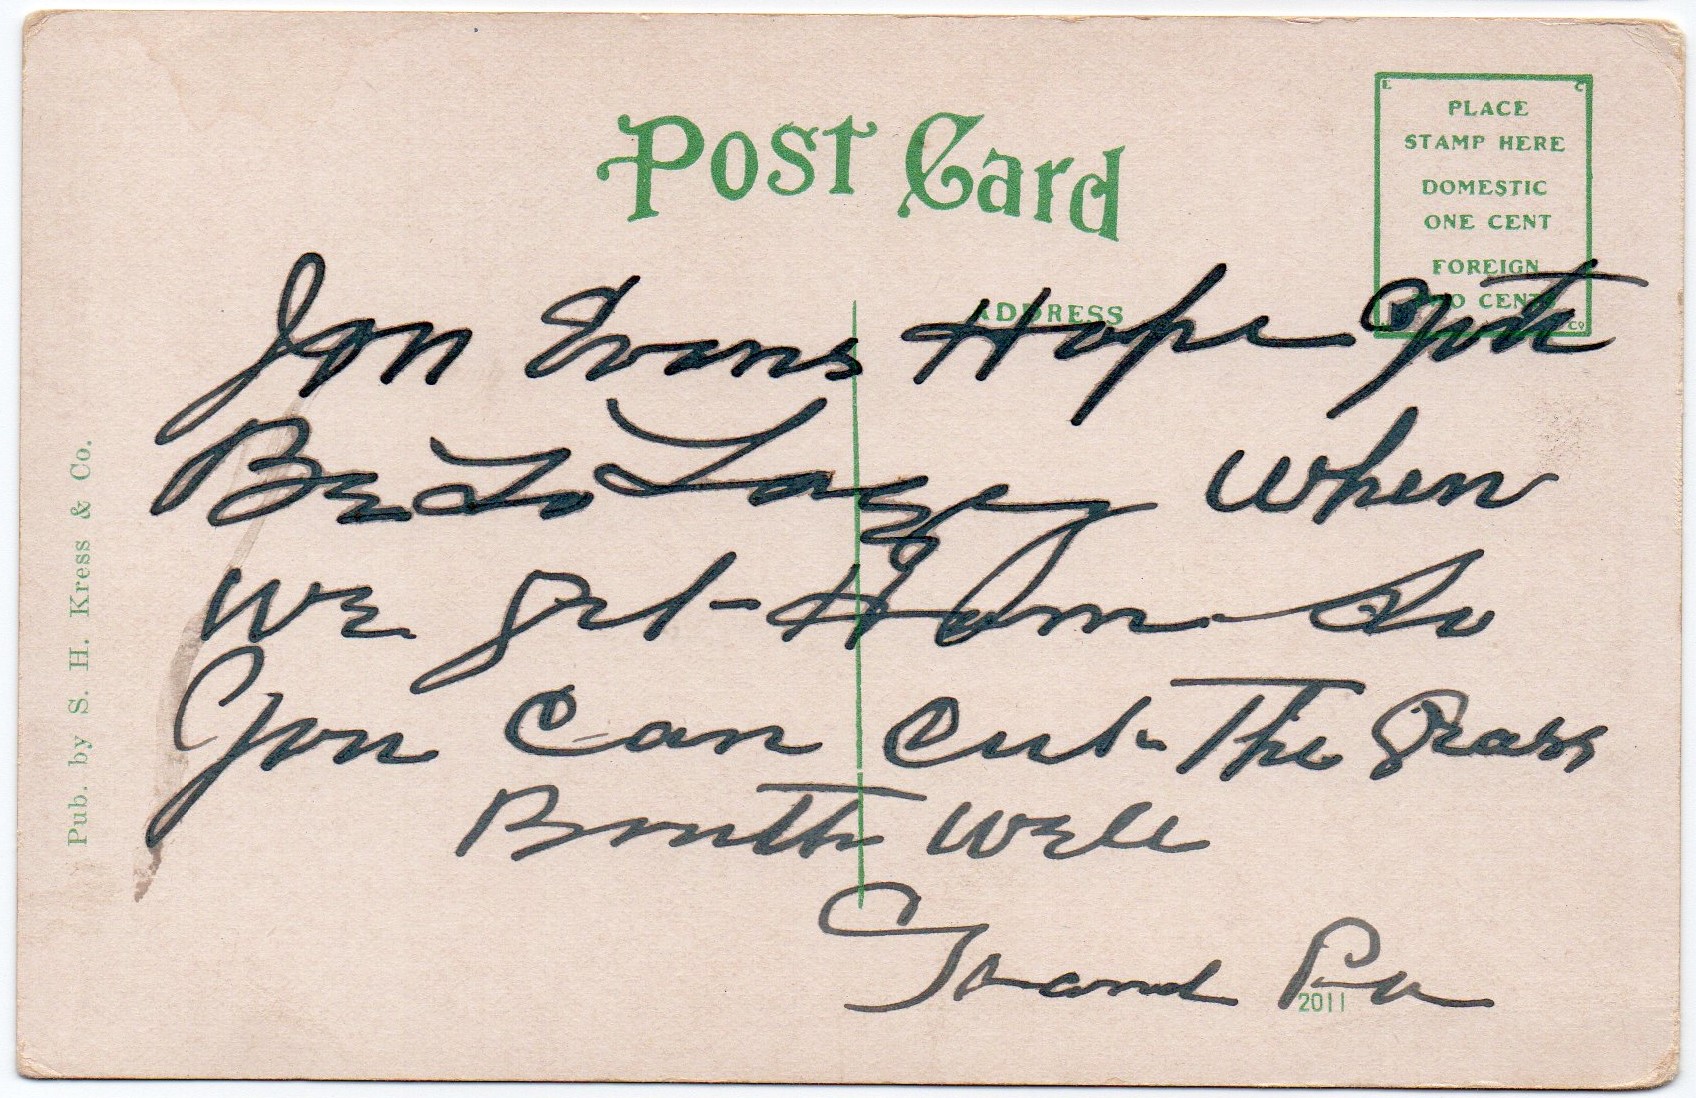 Post Card
E C
PLACE
STAMP HERE
DOMESTIC
ONE CENT
FOREIGN
TWO CENTS
Co
ADDRESS
Jon Evans Hope
Be To Lazey When
We get Hom So
You Can Cut The Grass
Bouth Well
Grand Pa
2011
Pub. by S. H. Kress & Co.